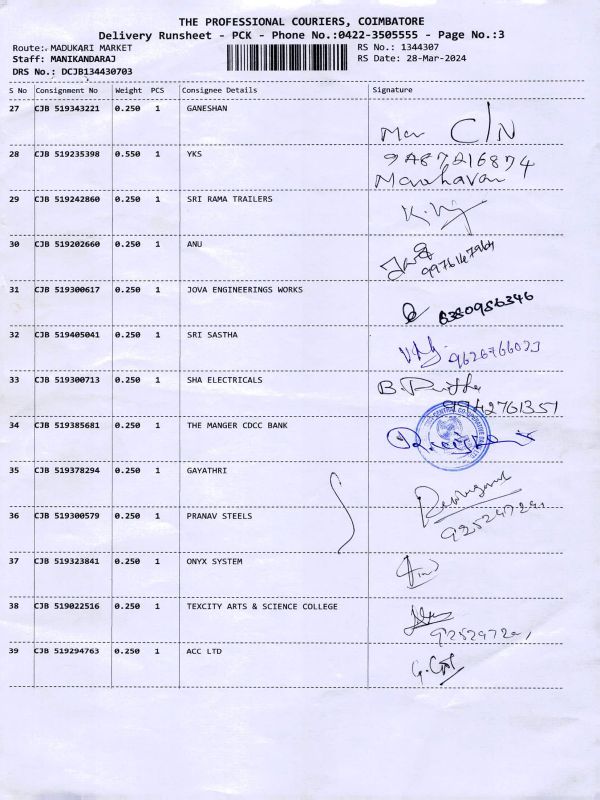 THE PROFESSIONAL COURIERS, COIMBATORE
Delivery Runsheet - PCK - Phone No.:0422-3505555 - Page No.:3
Route: MADUKARI MARKET
RS No.: 1344307
Staff: MANIKANDARAJ
RS Date: 28-Mar-2024
DRS No.: DCJB134430703
S No Consignment No Weight PCS Consignee Details Signature
27 CJB 519343221 0.250 1 GANESHAN
C/N
28 CJB 519235398 0.550 1 YKS
9487216874
29 CJB 519242860 0.250 1 SRI RAMA TRAILERS
30 CJB 519202660 0.250 1 ANU
31 CJB 519300617 0.250 1 JOVA ENGINEERINGS WORKS
6380956346
32 CJB 519405041 0.250 1 SRI SASTHA
33 CJB 519300713 0.250 1 SHA ELECTRICALS
9942761351
34 CJB 519385681 0.250 1 THE MANGER CDCC BANK
35 CJB 519378294 0.250 1 GAYATHRI
36 CJB 519300579 0.250 1 PRANAV STEELS
37 CJB 519323841 0.250 1 ONYX SYSTEM
38 CJB 519022516 0.250 1 TEXCITY ARTS & SCIENCE COLLEGE
39 CJB 519294763 0.250 1 ACC LTD